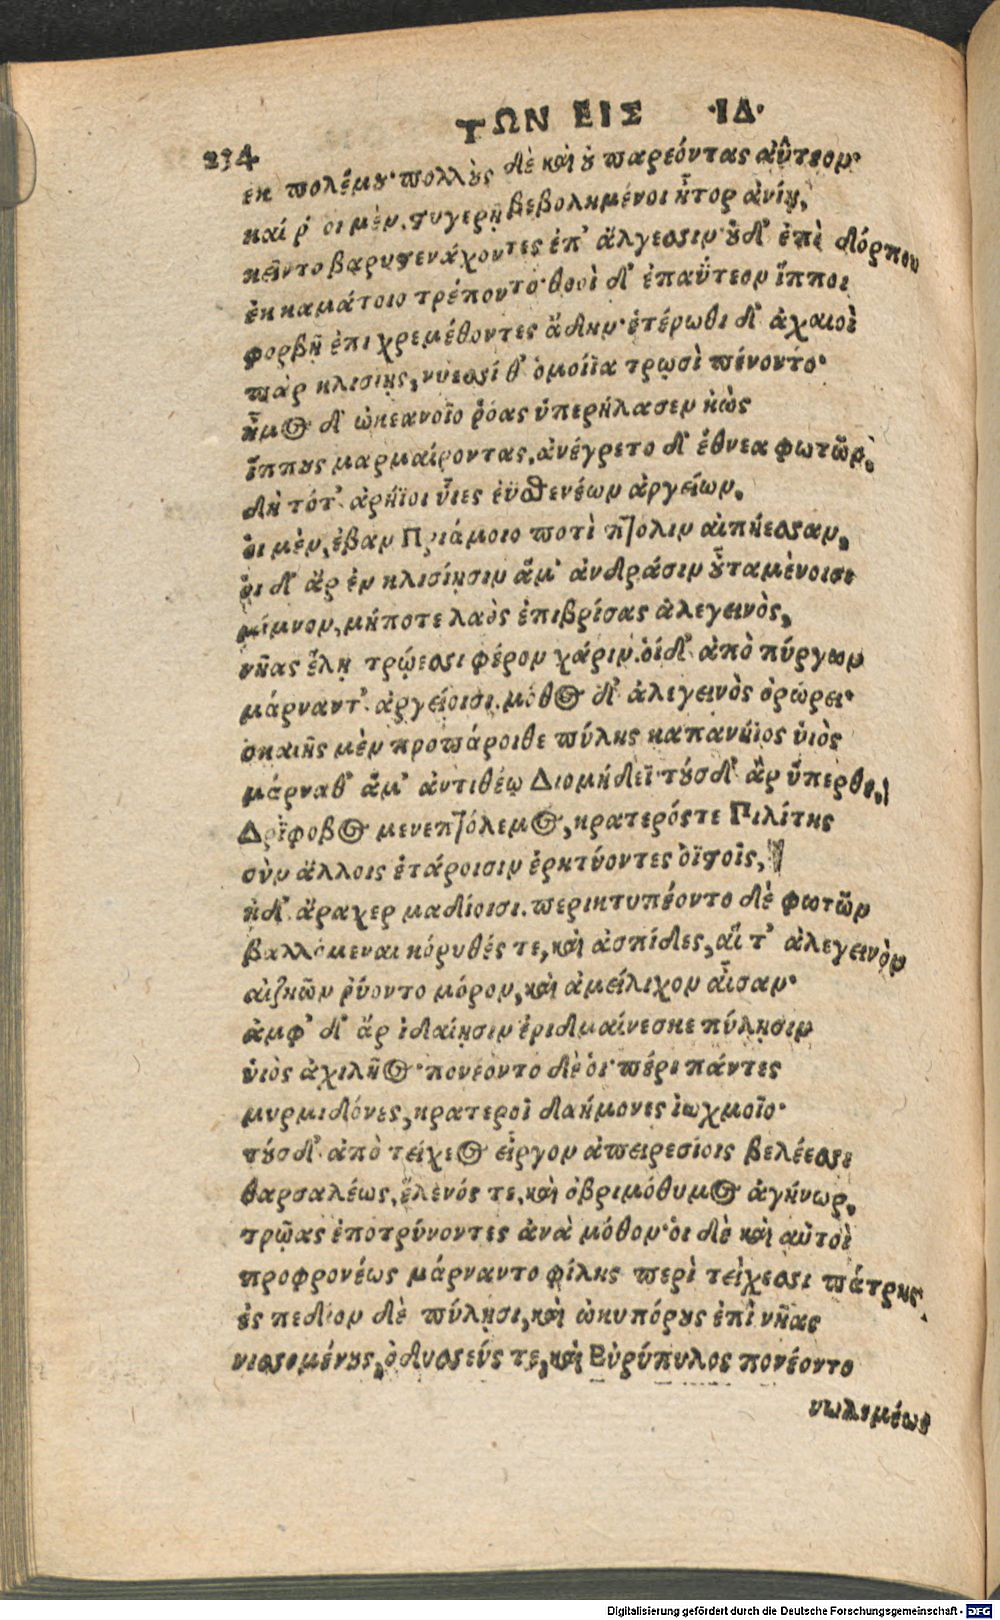 ΤΩΝ ΕΙΣ ·ΙΔ·
234
ἐκ πολέμου· πολλοὺς δὲ καὶ οὐ παρεόντας αὔτεον·
καί ῥ' οἱ μὲν, στυγερῇ βεβολημένοι ἦτορ ἀνίῃ,
κεῖντο βαρυστενάχοντες ἐπ' ἄλγεσσιν· οὐδ' ἐπὶ δόρπου
ἐκ καμάτοιο τρέποντο· θοοὶ δ' ἐπαΰτεον ἵπποι
φορβῇ ἐπι χρεμέθοντες ἄδην· ἑτέρωθι δ' ἀχαιοὶ
πὰρ κλισίῃς, νυεσσί θ' ὁμοίϊα τρωσὶ πένοντο·
ἦμος δ' ὠκεανοῖο ῥόας ὑπερήλασεν ἠὼς
ἵππους μαρμαίροντας, ἀνέγρετο δ' ἔθνεα φωτῶν,
δὴ τότ' ἀρήϊοι υἷες ἐϋσθενέων ἀργείων,
οἱ μὲν, ἔβαν Πριάμοιο ποτὶ πτόλιν αἰπήεσσαν,
οἱ δ' ἄρ ἐν κλισίῃσιν ἅμ' ἀνδράσιν οὐταμένοισι
μίμνον, μήποτε λαὸς ἐπιβρίσας ἀλεγεινὸς,
νῆας ἕλῃ τρώεσσι φέρον χάριν. οἱ δ' ἀπὸ πύργων
μάρναντ' ἀργείοισι. μόθος δ' ἀλεγεινὸς ὀρώρει·
σκαιῆς μὲν προπάροιθε πύλης καπανήϊος υἱὸς
μάρναθ' ἅμ' ἀντιθέῳ Διομήδεϊ· τοὺς δ' ἂρ ὕπερθε,
Δηΐφοβος μενεπτόλεμος, κρατερός τε Πιλίτης
σὺν ἄλλοις ἑτάροισιν ἐρκτύοντες ὀϊστοῖς,
ἠδ' ἄραχερ μαδίοισι. περικτυπέοντο δὲ φωτῶν
βαλλόμεναι κόρυθές τε, καὶ ἀσπίδες, αἵ τ' ἀλεγεινὸν
αἰζηῶν ῥύοντο μόρον, καὶ ἀμείλιχον αἶσαν·
ἀμφ' δ' ἄρ ἰδαίῃσιν ἐριδμαίνεσκε πύλῃσιν
υἱὸς ἀχιλῆος· πονέοντο δὲ οἱ πέρι πάντες
μυρμιδόνες, κρατεροὶ δαήμονες ἰωχμοῖο·
τοὺς δ' ἀπὸ τείχεος εἶργον ἀπειρεσίοις βελέεσσι
θαρσαλέως, ἕλενός τε, καὶ ὀβριμόθυμος ἀγήνωρ,
τρῶας ἐποτρύνοντες ἀνὰ μόθον· οἱ δὲ καὶ αὐτοὶ
προφρονέως μάρναντο φίλης περὶ τείχεσσι πάτρης·
ἐς πεδίον δὲ πύλῃσι, καὶ ὠκυπόρους ἐπὶ νῆας
νισσομένους, ὀδυσσεύς τε, καὶ Εὐρύπυλος πονέοντο
νωλεμέως
Digitalisierung gefördert durch die Deutsche Forschungsgemeinschaft - DFG